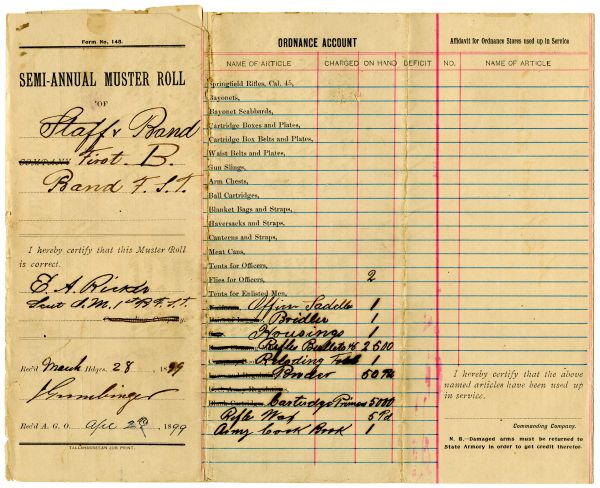 Form No. 148.
SEMI-ANNUAL MUSTER ROLL
OF
Staff & Band
COMPANY First B.
Band F. S. T.
I hereby certify that this Muster Roll
is correct.
E. A. Ricker
1st B F. S. T.
Commanding Company.
Rec'd March Hdqrs. 28 1899
J Gumbinger
Rec'd A. G. O. Apl 2nd, 1899
TALLAHASSEEAN JOB PRINT.
ORDNANCE ACCOUNT
NAME OF ARTICLE CHARGED ON HAND DEFICIT
Springfield Rifles, Cal. 45,
Bayonets,
Bayonet Scabbards,
Cartridge Boxes and Plates,
Cartridge Box Belts and Plates,
Waist Belts and Plates,
Gun Slings,
Arm Chests,
Ball Cartridges,
Blanket Bags and Straps,
Haversacks and Straps,
Canteens and Straps,
Meat Cans,
Tents for Officers,
Flies for Officers, 2
Tents for Enlisted Men,
Officer Saddle 1
Bridler 1
Housings 1
Rifles Bullets 45 2500
Reloding Tool 1
Powder 50
Cartridge Primers 5000
Rifle Wax 5
Army Cook Book 1
Affidavit for Ordnance Stores used up in Service
NO. NAME OF ARTICLE
I hereby certify that the above
named articles have been used up
in service.
Commanding Company.
N. B.—Damaged arms must be returned to
State Armory in order to get credit therefor.